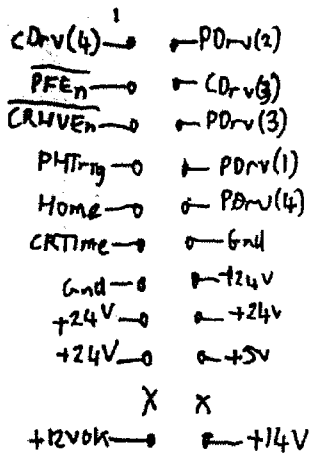 1
CDrv(4) PDrv(2)
PFEn CDrv(3)
CRHVEn PDrv(3)
PHTrig PDrv(1)
Home PDrv(4)
CRTime Gnd
Gnd +24V
+24V +24V
+24V +5V
X X
+12VOK +14V